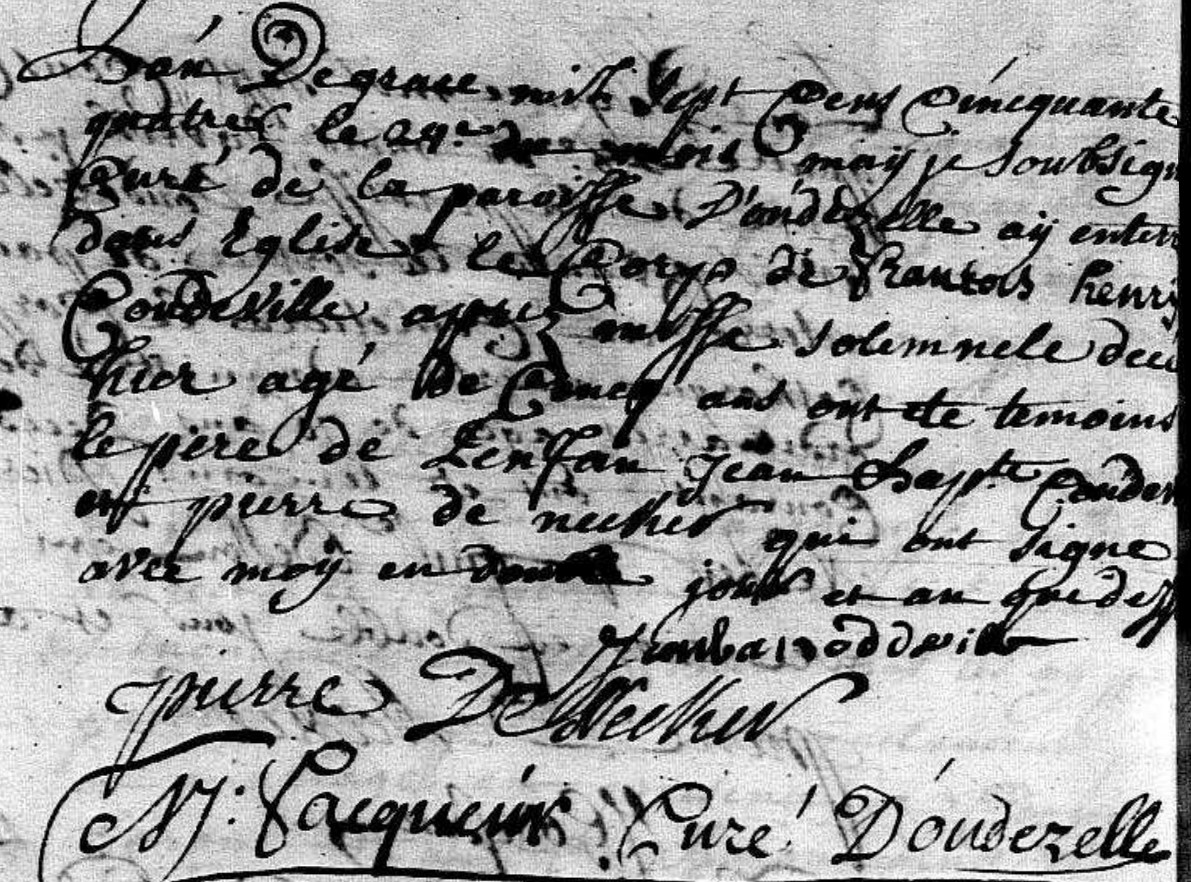 L'an De grace mil Sept Cens Cincquante
quatre le 29e du mois may je soubsign
Curé de la paroisse D'oudezelle aÿ enterr
dans Eglise le Corps de francois henrÿ
Coudeville apres messe solemnele deced
hier agé de Cincq ans ont ete temoins
le pere de L'enfan jean bapte Coudev
et pierre de necker qui ont signe
avec moÿ en double jour et an que dess
pierre De Necker
N: Cacqueür Curé D'oudezelle